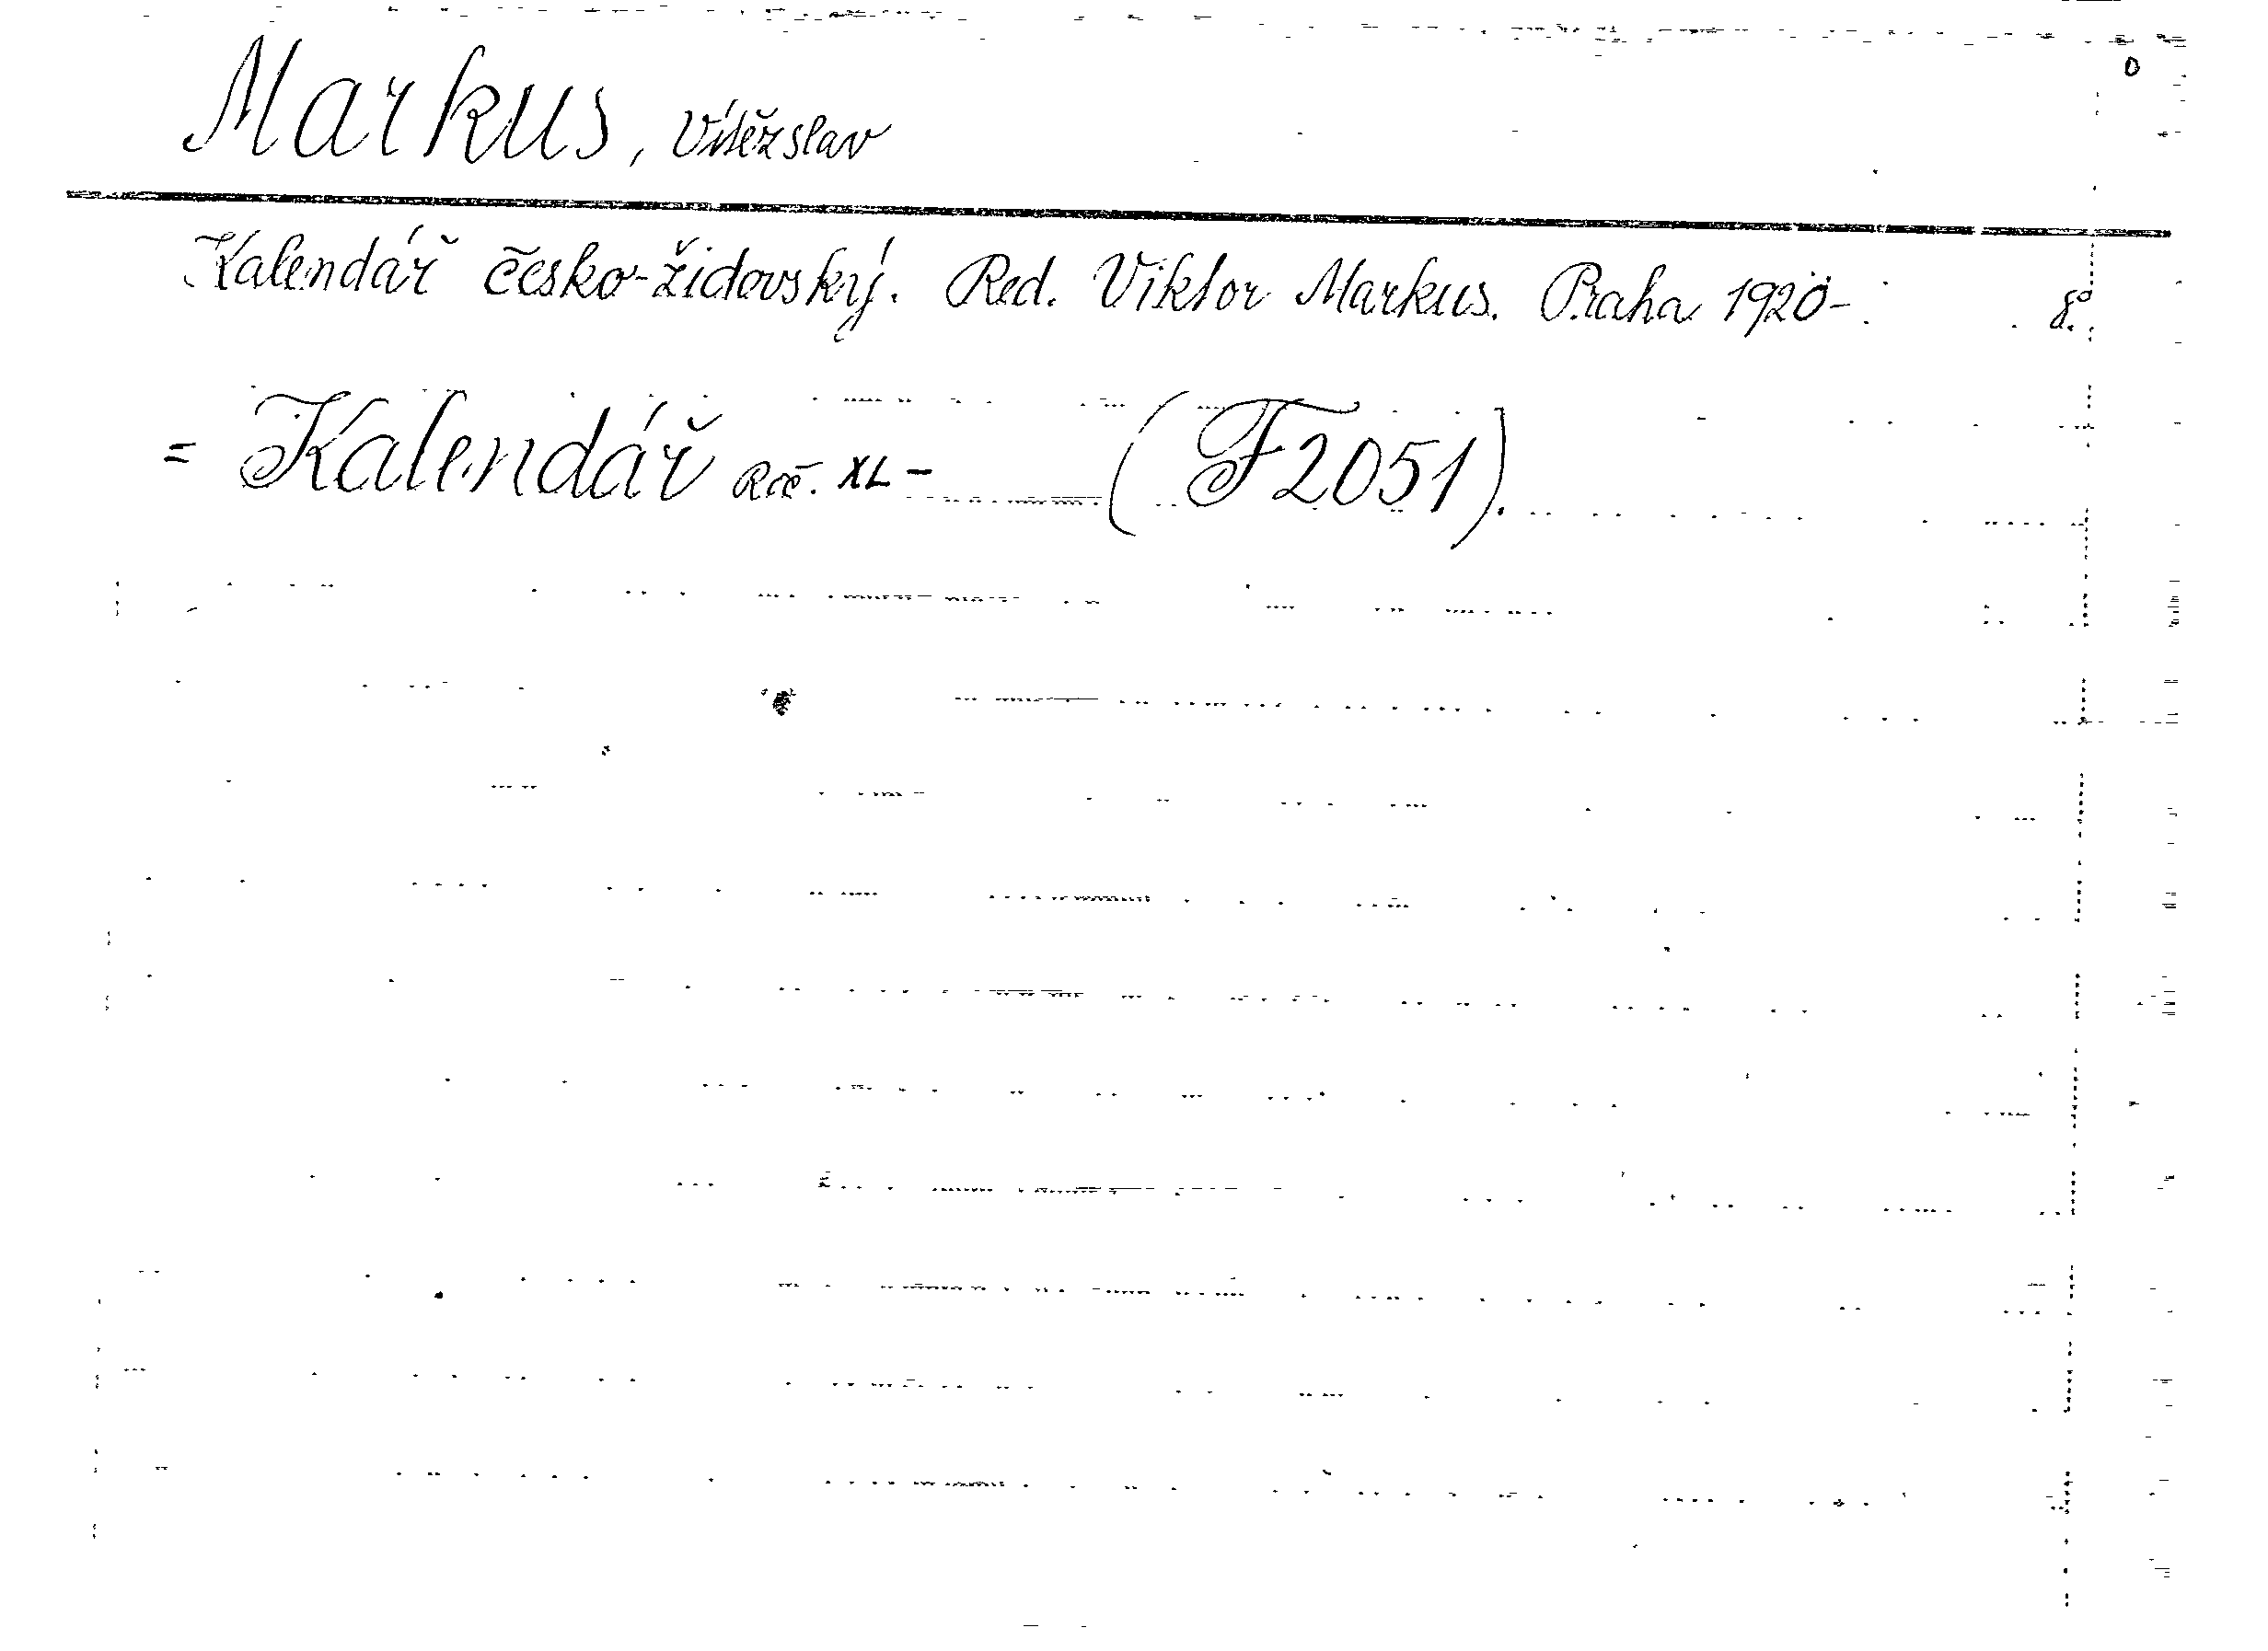 Markus, Vítězslav
Kalendář česko-židovský. Red. Viktor Markus. Praha 1920- 8°.
= Kalendář Roč. XL- (F2051).